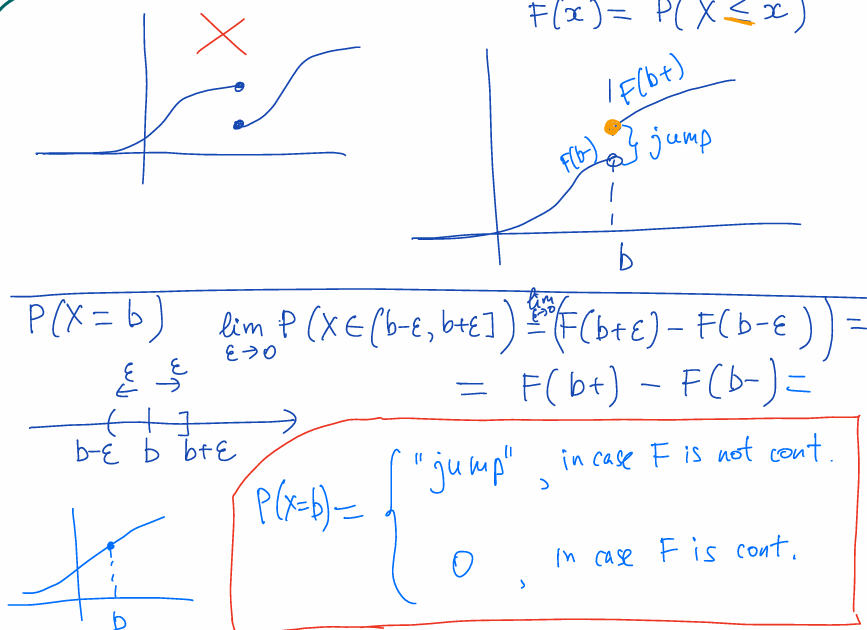 F(x) = P(X ≤ x)
F(b+)
F(b-) } jump
b
P(X = b) lim ε→0 P(X ∈ (b-ε, b+ε]) = lim ε→0 (F(b+ε) - F(b-ε)) =
= F(b+) - F(b-) =
ε ε
b-ε b b+ε
P(X=b) = { "jump", in case F is not cont.
0, in case F is cont.
b